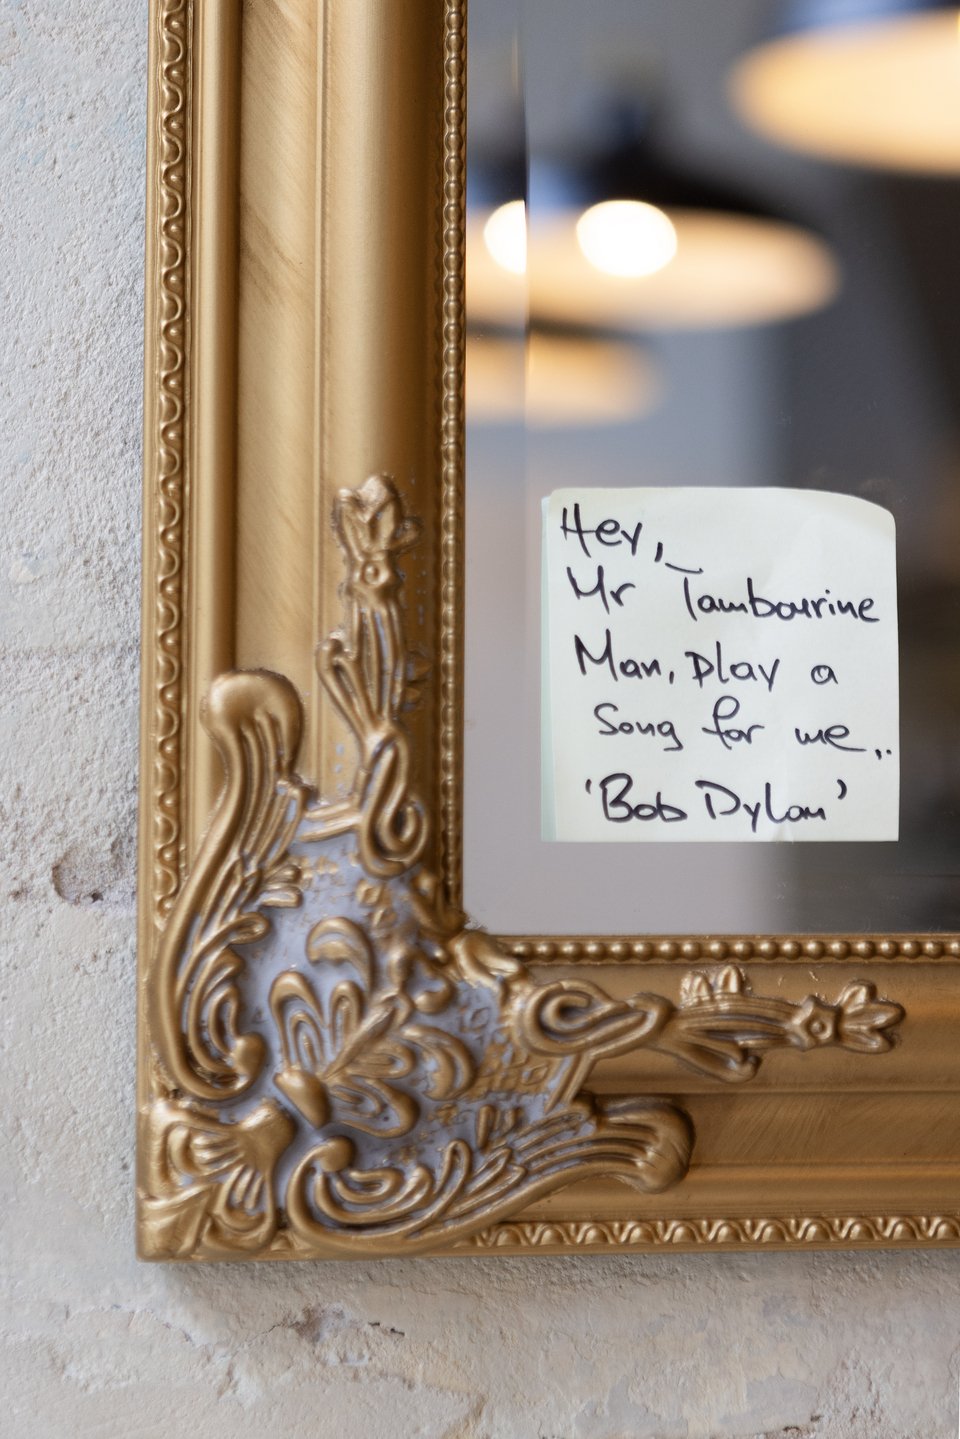 Hey,
Mr Tambourine
Man, play a
song for me..
'Bob Dylan'